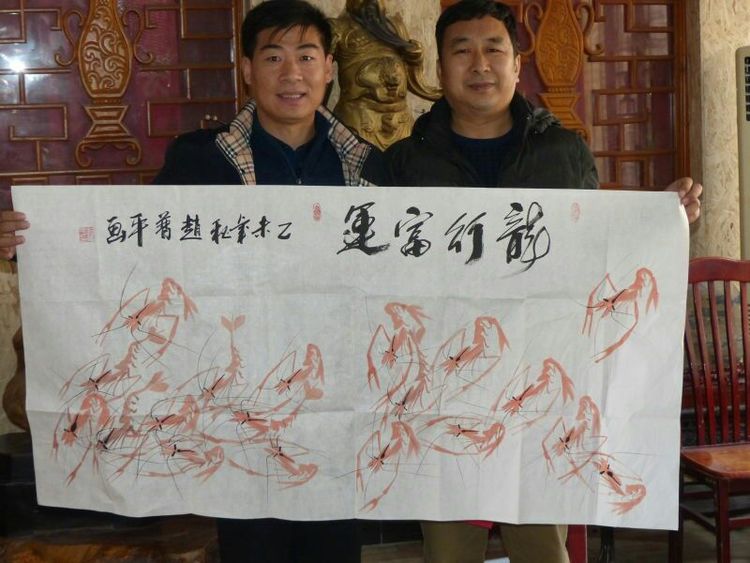 龍行富運
乙未年秋趙普平画